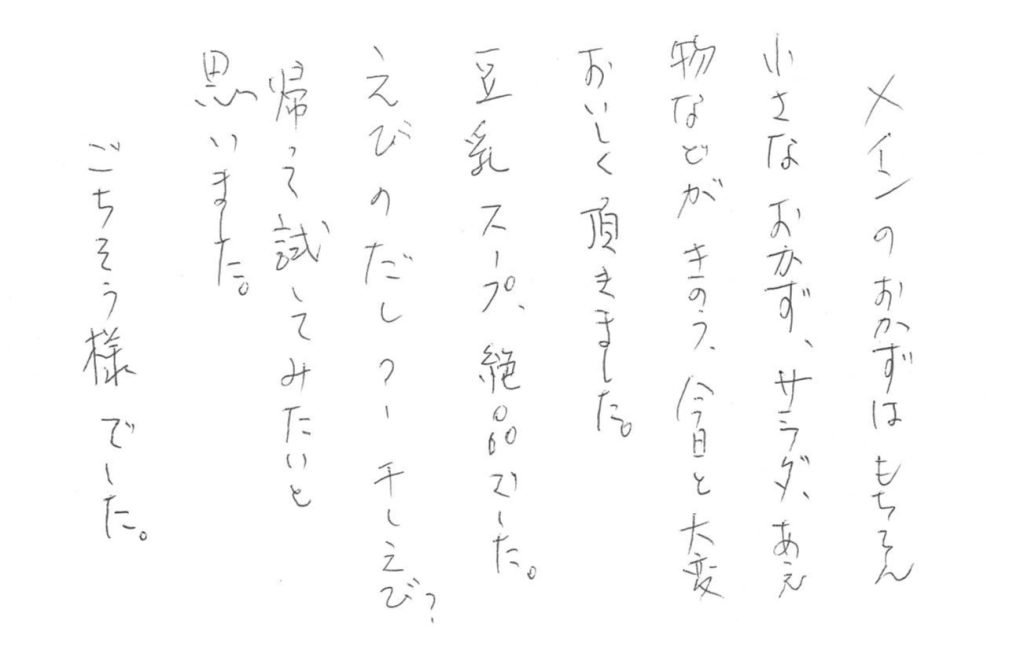 メインのおかずはもちろん
小さなおかず、サラダ、あえ
物などが きのう、今日と大変
おいしく頂きました。
豆乳スープ、絶品でした。
えびのだしつー干しえび?
帰って試してみたいと
思いました。
ごちそう様でした。